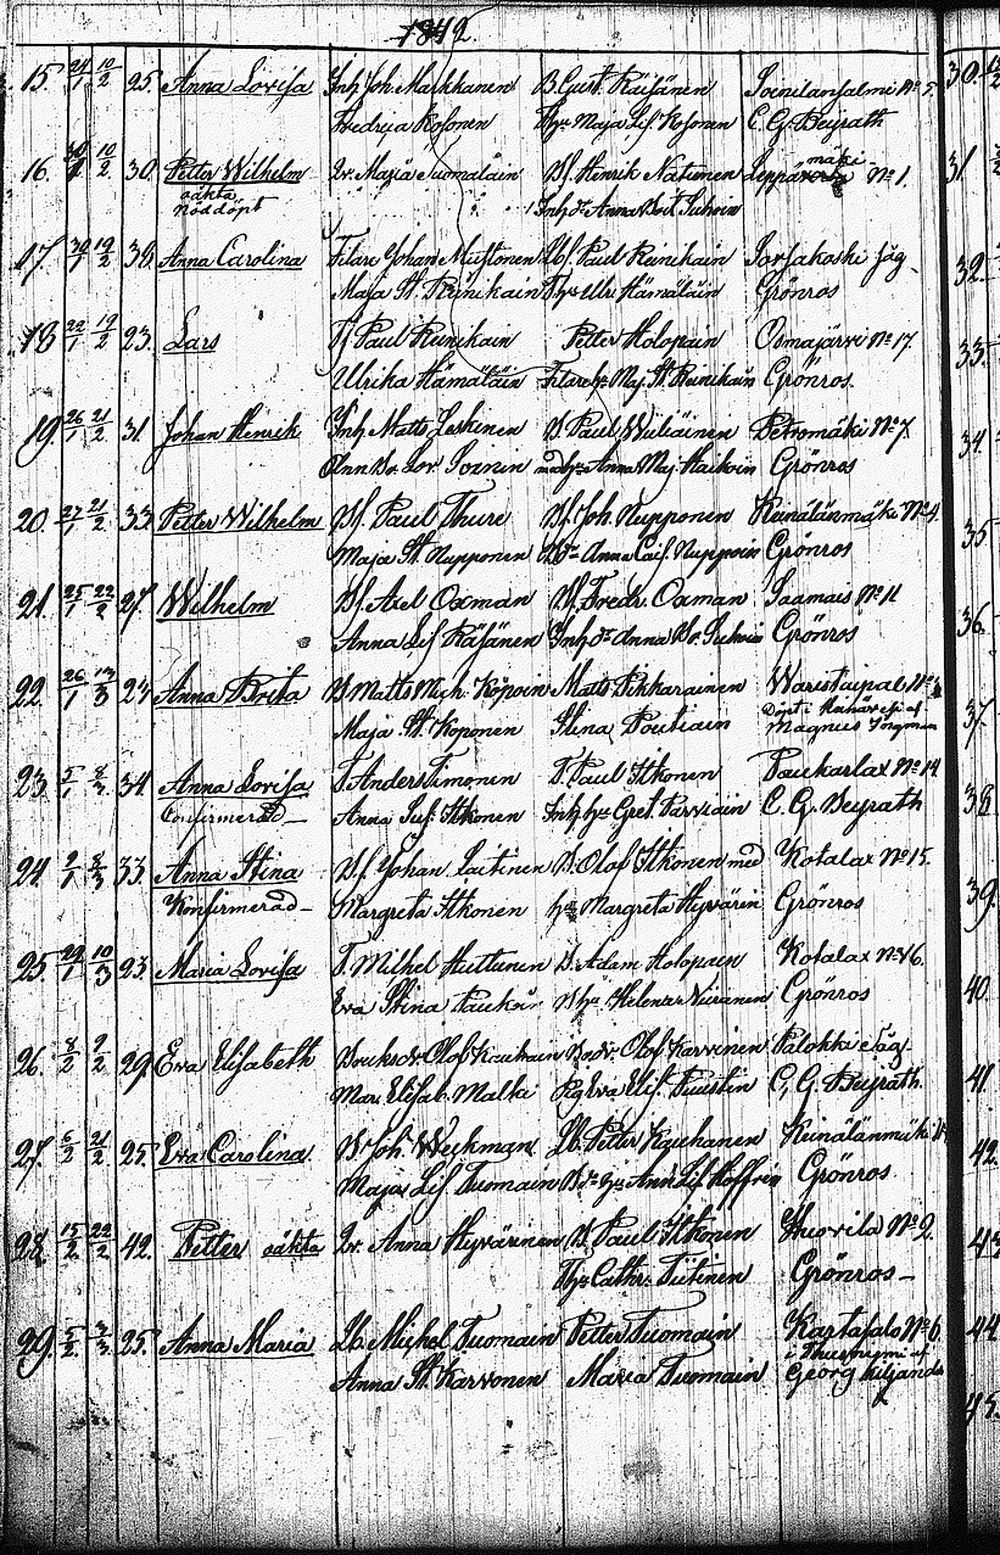 1842.
15. 24/1 10/2 25. Anna Lovisa Inh Joh. Markkanen B. Gust. Räisänen Soinilansalmi No 5.
Fredrika Kosonen Hu Maja Lis. Kosonen C. G. Beyrath
16. 30/1 10/2 30. Petter Wilhelm Qv. Maja Tuomalain Bf. Henrik Natunen Leppä mäki No 1.
oäkta Nöddöpt Inh dr Anna Brit Suhoin
17. 30/1 19/2 30. Anna Carolina Filare Johan Mustonen Lbf. Paul Reinikain Sorsakoski Såg
Maja St. Reinikain Hu Ulr. Hämäläin Grönros
18 22/1 19/2 23. Lars T. Paul Reinikain Petter Holopain Osmajärvi No 17.
Ulrika Hämäläin Filare hu Maj. St. Reinikain Grönros.
19. 26/1 21/2 31. Johan Henrik Inh Matts Leskinen B. Paul Wiliäinen Petromäki No 7.
Ann Lov. Soanin med hu Anna Maj. Haikoin Grönros
20. 27/1 21/2 33. Petter Wilhelm Bf. Paul Thure Bf. Joh. Nupponen Keinälänmäki No 4.
Maja St. Nupponen Bdr Anna Caisa Nuppoin Grönros
21. 25/1 22/2 27. Wilhelm Bf. Axel Oxman Bf. Fredr. Oxman Saamais No 11
Anna Lis Räsänen Inh dr Anna Suhoin Grönros
22. 26/1 13/3 24 Anna Brita B Matts Mich. Kopoin Matts Pikkarainen Waristaipal No
Maja St. Koponen Stina Poutiain Döpt i af Magnus Forsman
23. 5/1 8/3 34. Anna Lovisa T. Anders Timonen T. Paul Itkonen Paukarlax No 14.
Confirmerad Anna Sus. Itkonen Inh hu Gret. Parviain C. G. Beyrath
24. 2/1 8/3 33. Anna Stina Bf. Johan Laitinen B. Olof Itkonen med Kotalax No 15.
Konfirmerad Margreta Itkonen hu Margreta Hyvärin Grönros
25. 29/1 10/3 23. Maria Lovisa T. Mikhel Huttunen B. Adam Holopain Kotalax No 16.
Eva Stina Paukoin B hu Helena Niiranen Grönros
26. 8/2 9/2 29. Eva Elisabeth Bruksdr Olof Kauhain Olof Karvinen Palokki Såg
Mar. Elisab. Malki Pig Eva Elis. Puustin C. G. Beyrath.
27. 6/2 21/2 25. Eva Carolina B. Joh. Weckman Lb. Petter Kauhanen Keinälänmäki
Maja Lis Tuomain B hu Ann Lis Hoffrin Grönros
28. 15/2 22/2 42. Petter oäkta Qv. Anna Hyvärinen B. Paul Itkonen Huovila No 2.
Hu Cathr. Tiitinen Grönros
29. 5/2 3/3 25. Anna Maria Lb. Michel Tuomain Petter Tuomain Kartasalo No 6.
Anna St. Karvonen Maria Tuomain i af Georg Kiljander
30.
31.
32.
33.
34.
35
36.
37.
38
39.
40
41.
42.
43
44.
45.